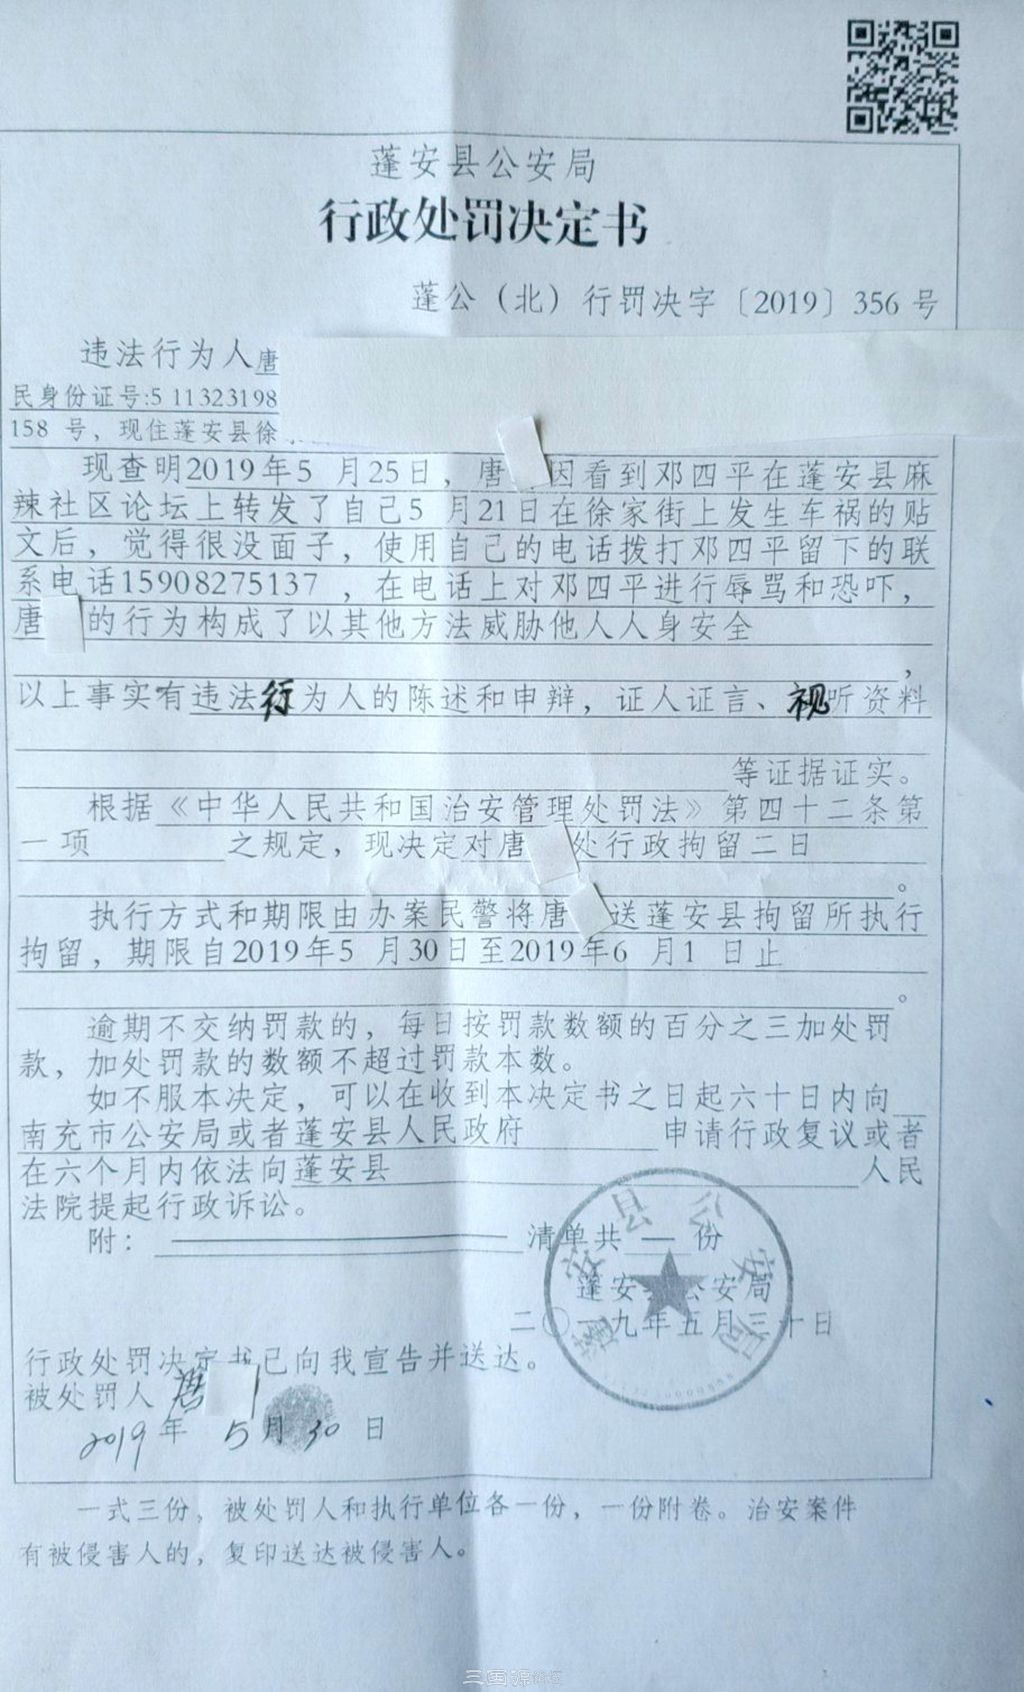 蓬安县公安局
行政处罚决定书
蓬公（北）行罚决字〔2019〕356 号
违法行为人唐
民身份证号:5 11323198
158 号，现住蓬安县徐
现查明2019年5 月25日，唐 因看到邓四平在蓬安县麻
辣社区论坛上转发了自己5 月21日在徐家街上发生车祸的贴
文后，觉得很没面子，使用自己的电话拨打邓四平留下的联
系电话15908275137 ，在电话上对邓四平进行辱骂和恐吓，
唐 的行为构成了以其他方法威胁他人人身安全
，
以上事实有违法行为人的陈述和申辩，证人证言、视听资料
等证据证实。
根据《中华人民共和国治安管理处罚法》第四十二条第
一项 之规定，现决定对唐 处行政拘留二日
。
执行方式和期限由办案民警将唐 送蓬安县拘留所执行
拘留，期限自2019年5 月30日至2019年6 月1 日止
。
逾期不交纳罚款的，每日按罚款数额的百分之三加处罚
款，加处罚款的数额不超过罚款本数。
如不服本决定，可以在收到本决定书之日起六十日内向
南充市公安局或者蓬安县人民政府 申请行政复议或者
在六个月内依法向蓬安县 人民
法院提起行政诉讼。
附： 清单共 一 份
蓬安县公安局
二〇一九年五月三十日
蓬安县公安局
行政处罚决定书已向我宣告并送达。
被处罚人 唐
2019 年 5 月 30 日
一式三份，被处罚人和执行单位各一份，一份附卷。治安案件
有被侵害人的，复印送达被侵害人。